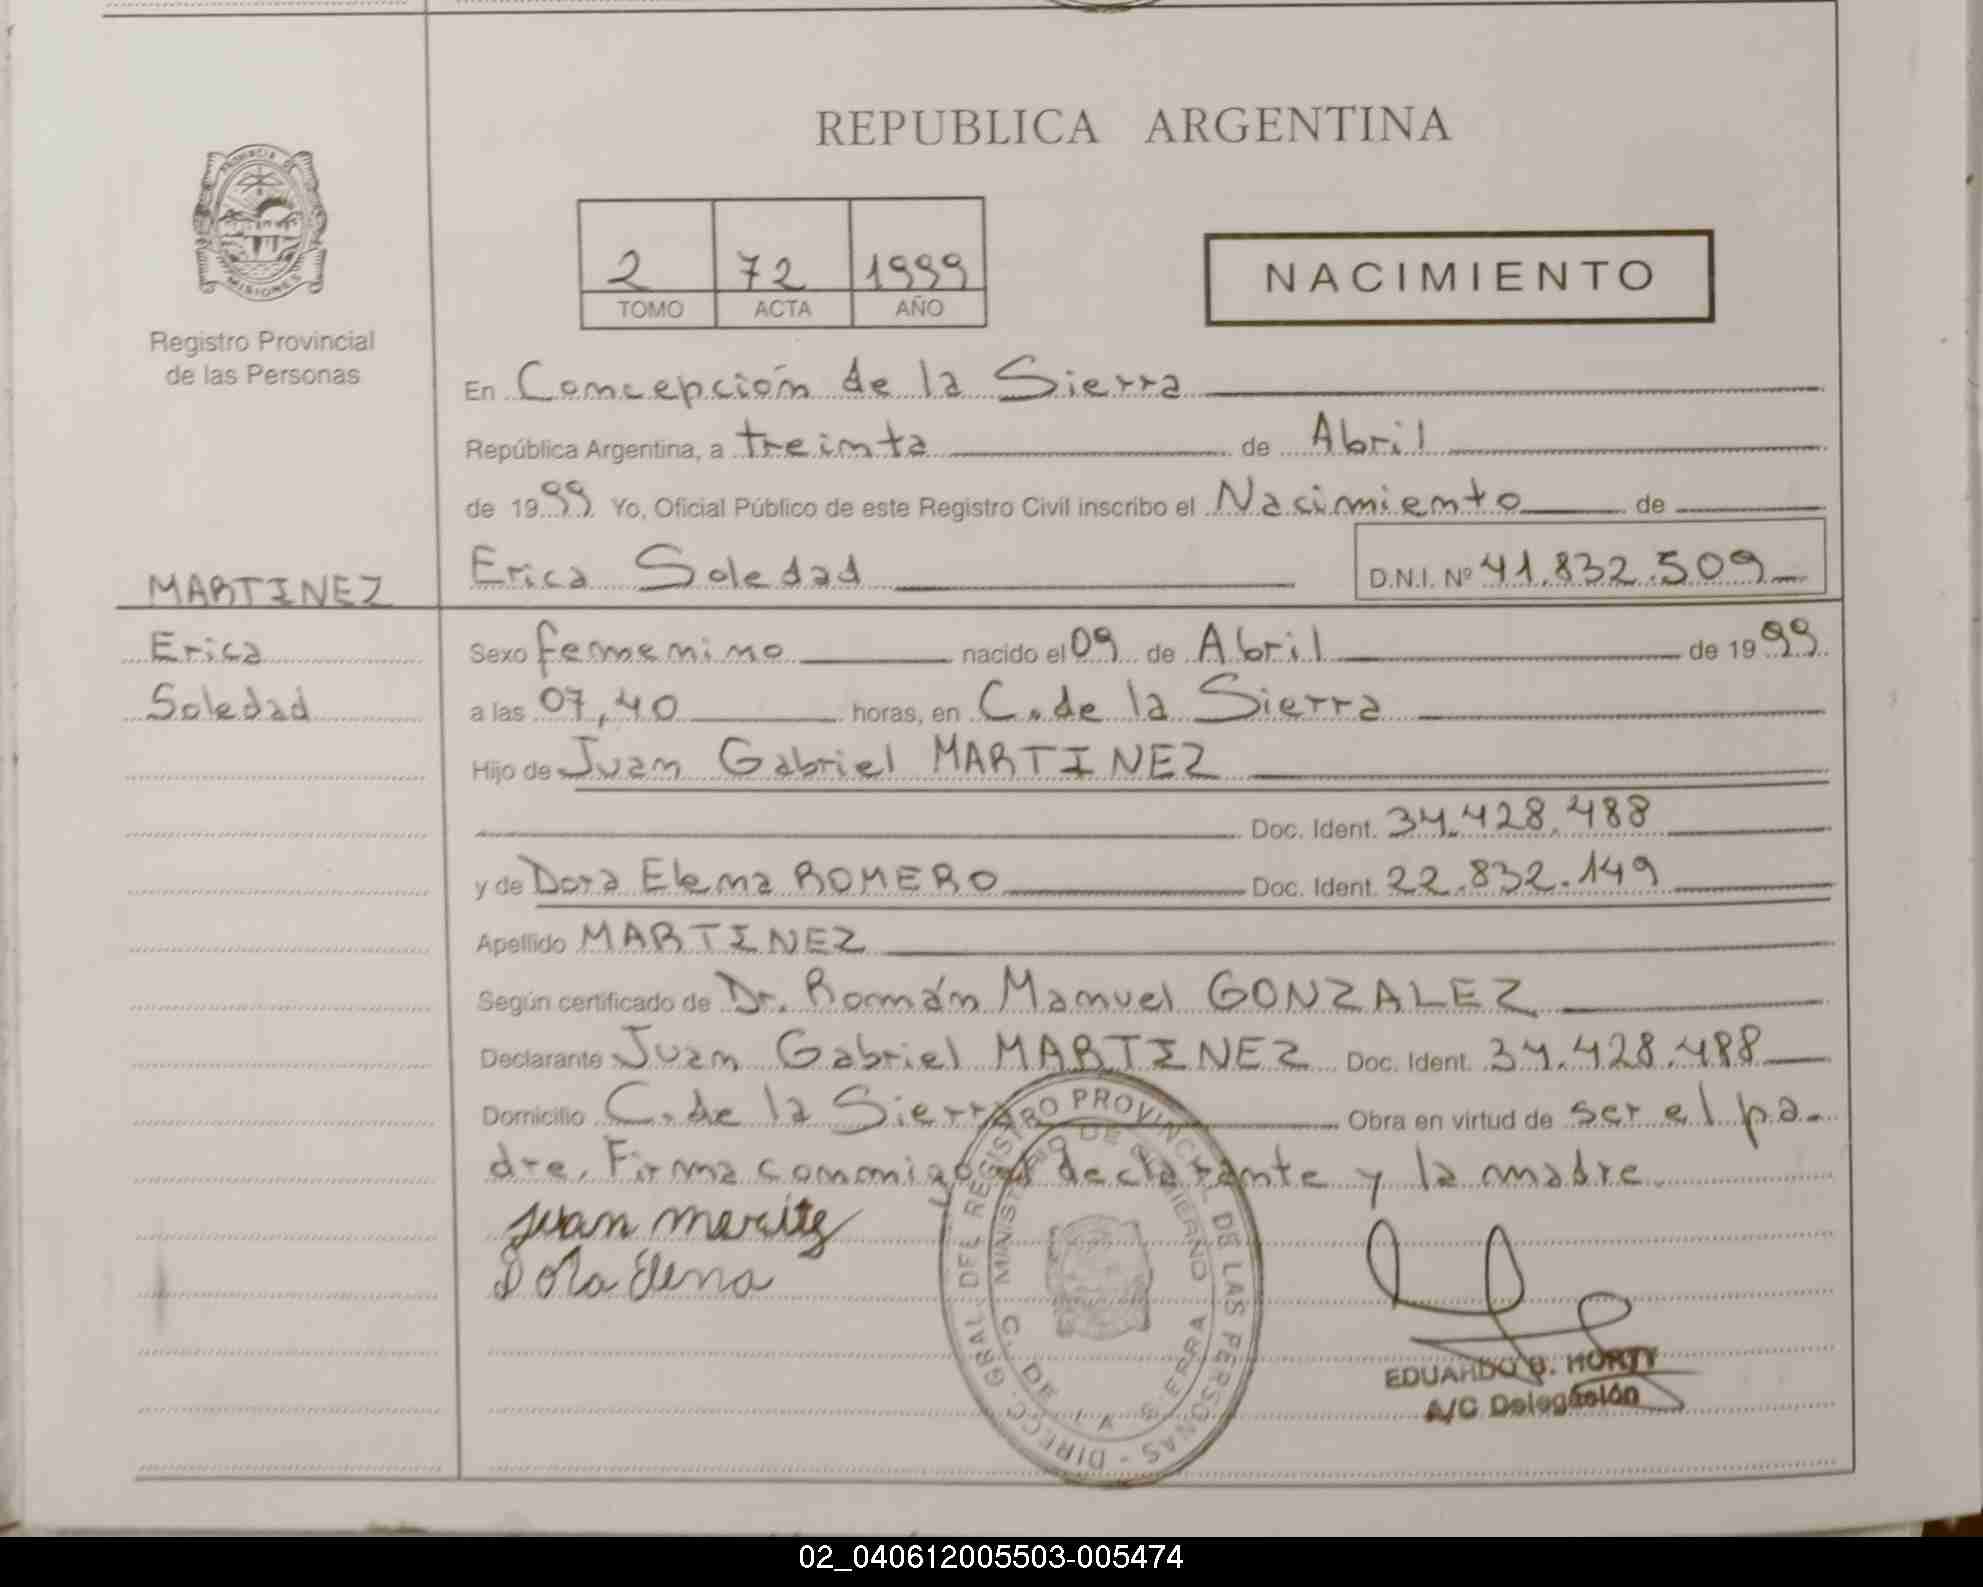 REPUBLICA ARGENTINA
PROVINCIA DE
MISIONES
Registro Provincial
de las Personas
2 72 1999
TOMO ACTA AÑO
NACIMIENTO
En Concepción de la Sierra
República Argentina, a treinta de Abril
de 1999 Yo, Oficial Público de este Registro Civil inscribo el Nacimiento de
Erica Soledad D.N.I. Nº 41.832.509
MARTINEZ
Erica
Soledad
Sexo femenino nacido el 09 de Abril de 1999
a las 07,40 horas, en C. de la Sierra
Hijo de Juan Gabriel MARTINEZ
Doc. Ident. 34.428.488
y de Dora Elena ROMERO Doc. Ident. 22.832.149
Apellido MARTINEZ
Según certificado de Dr. Román Manuel GONZALEZ
Declarante Juan Gabriel MARTINEZ Doc. Ident. 34.428.488
Domicilio C. de la Sierra Obra en virtud de ser el pa-
dre. Firma conmigo el declarante y la madre.
Juan
Dora Elena
DIRECC. GRAL. DEL REGISTRO PROVINCIAL DE LAS PERSONAS -
MINISTERIO DE GOBIERNO
C. DE LA SIERRA
EDUARDO HORTY
A/C Delegación
02_040612005503-005474